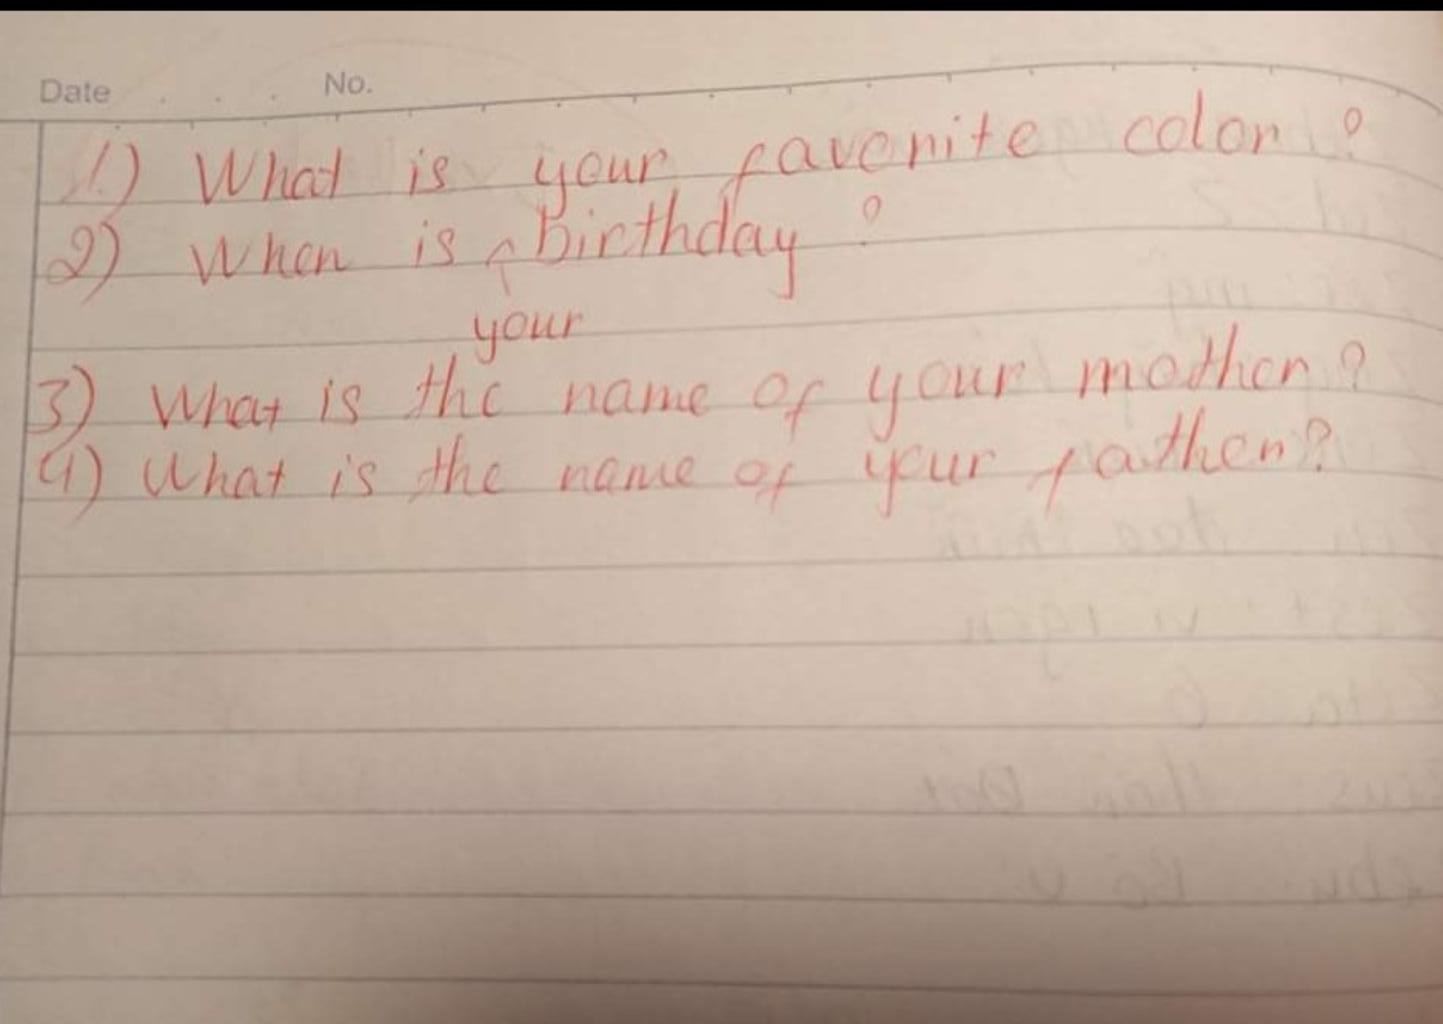 Date No.
1.) What is your favorite color?
2) When is ^ birthday?
your
3) What is the name of your mother?
4) What is the name of your father?